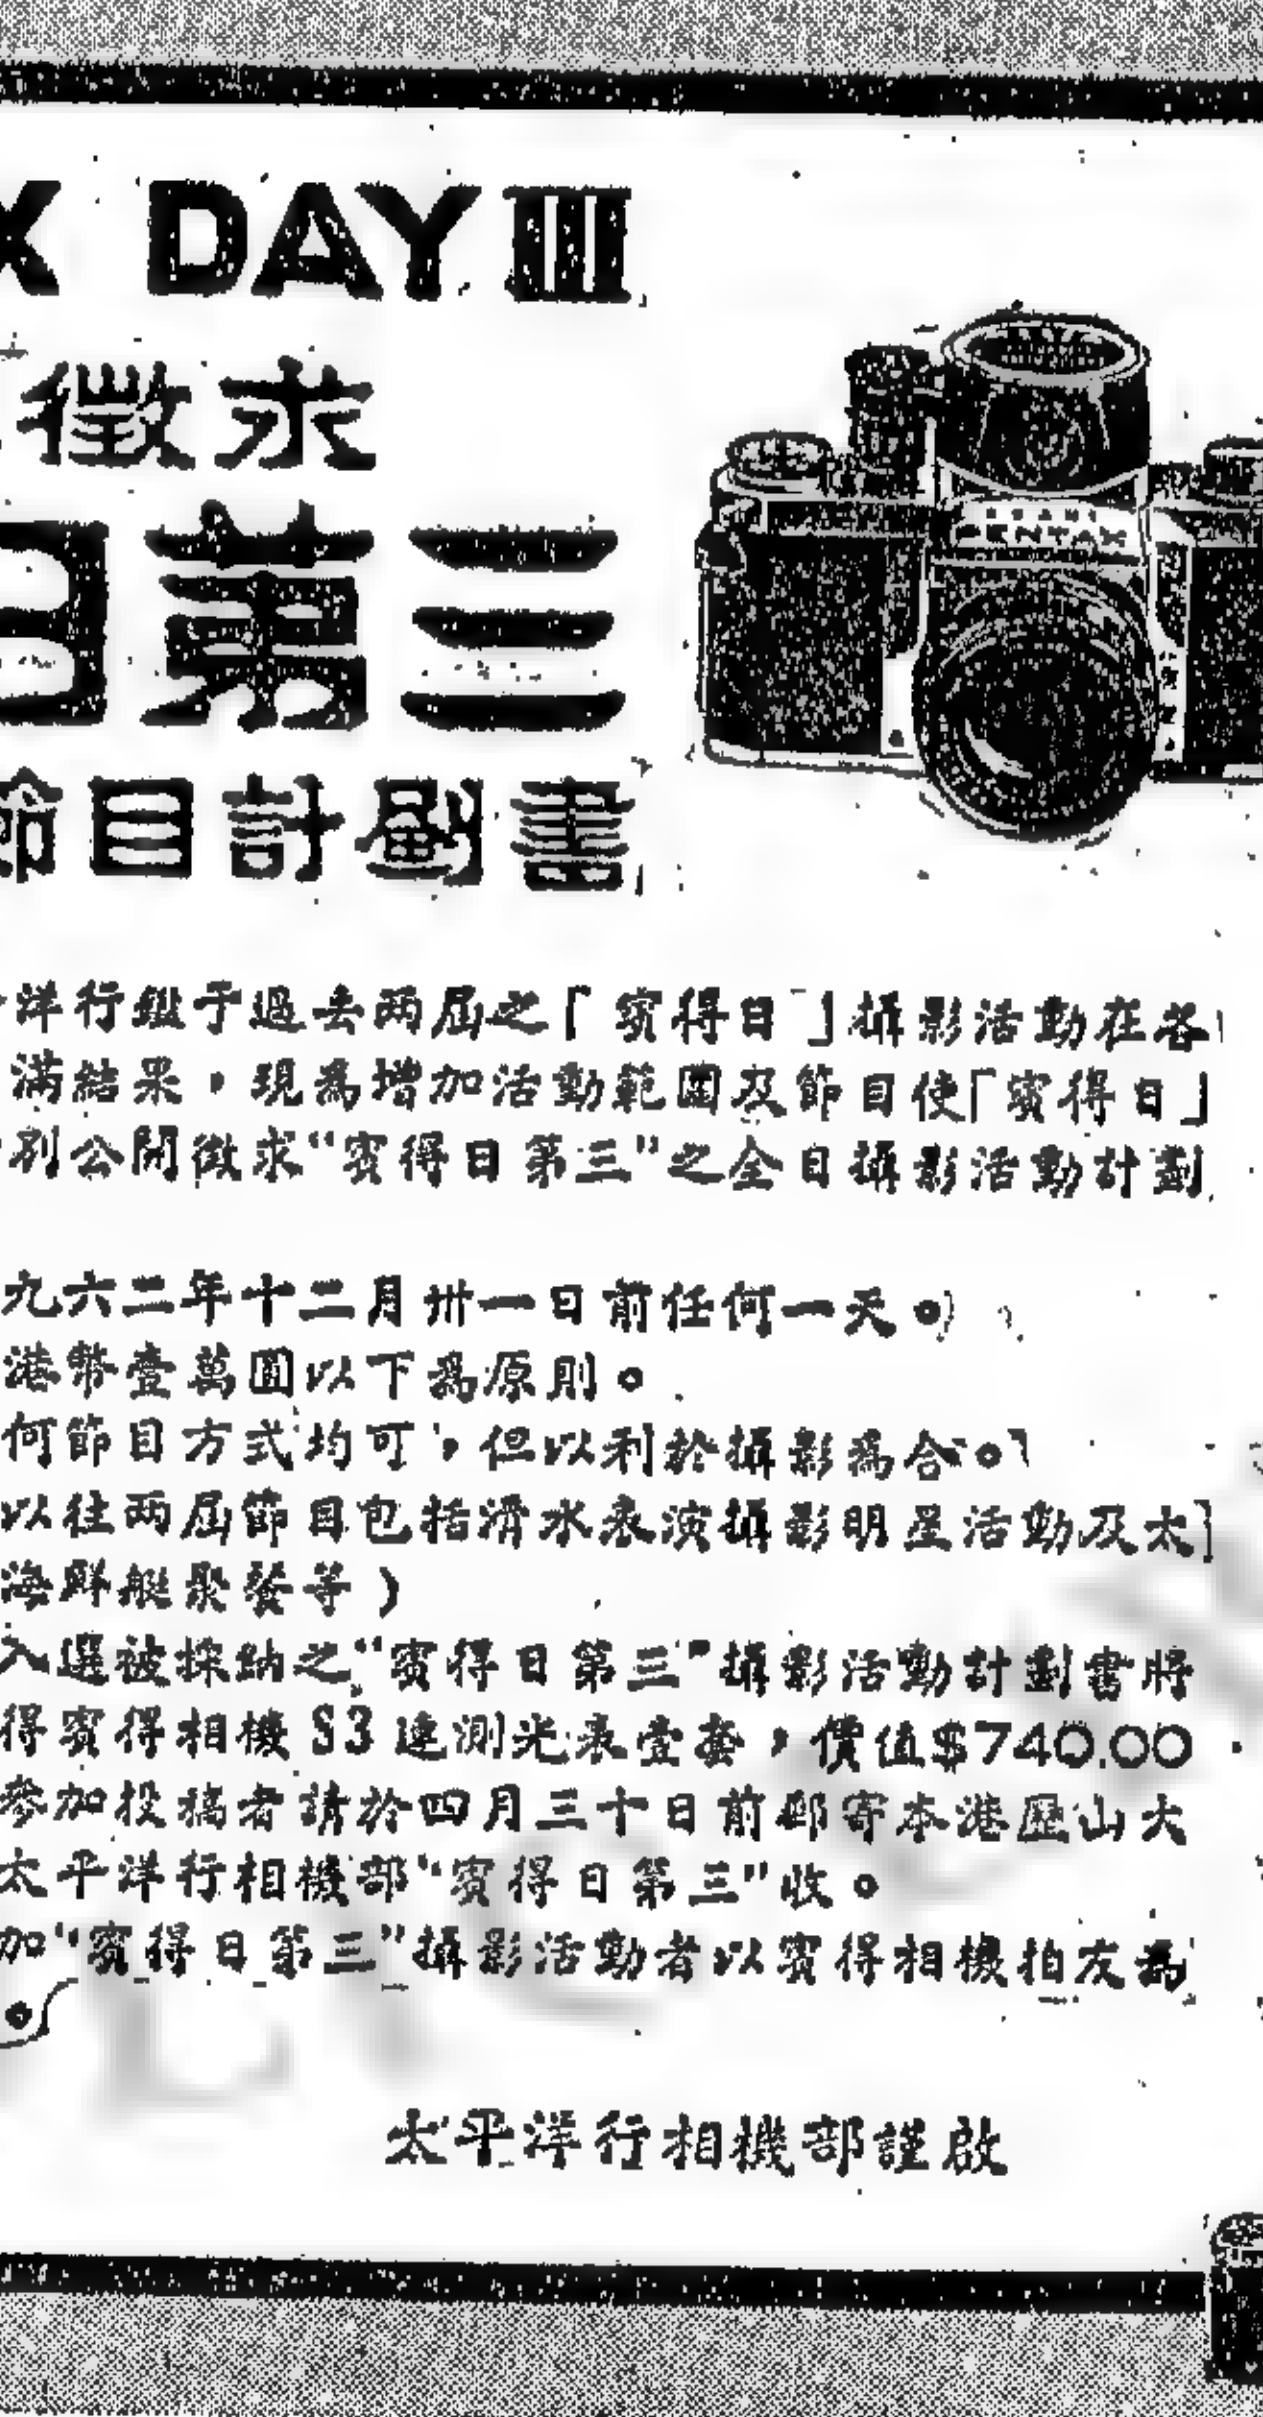 X DAY III
徵求
日第三
節目計劃書
PENTAX
洋行鑑于過去两屆之「賓得日」攝影活動在各
滿結果，現為增加活動範圍及節目使「賓得日」
別公開徵求“賓得日第三”之全日攝影活動計劃
九六二年十二月卅一日前任何一天。
港幣壹萬圓以下為原則。
何節目方式均可，但以利於攝影為合。
以往两屆節目包括滑水表演攝影明星活動及太
海鮮艇聚餐等）
入選被採納之“賓得日第三”攝影活動計劃書將
得賓得相機 S3 連測光表壹套，價值$740.00
參加投稿者請於四月三十日前郵寄本港歷山大
太平洋行相機部“賓得日第三”收。
加“賓得日第三”攝影活動者以賓得相機拍友為
太平洋行相機部謹啟